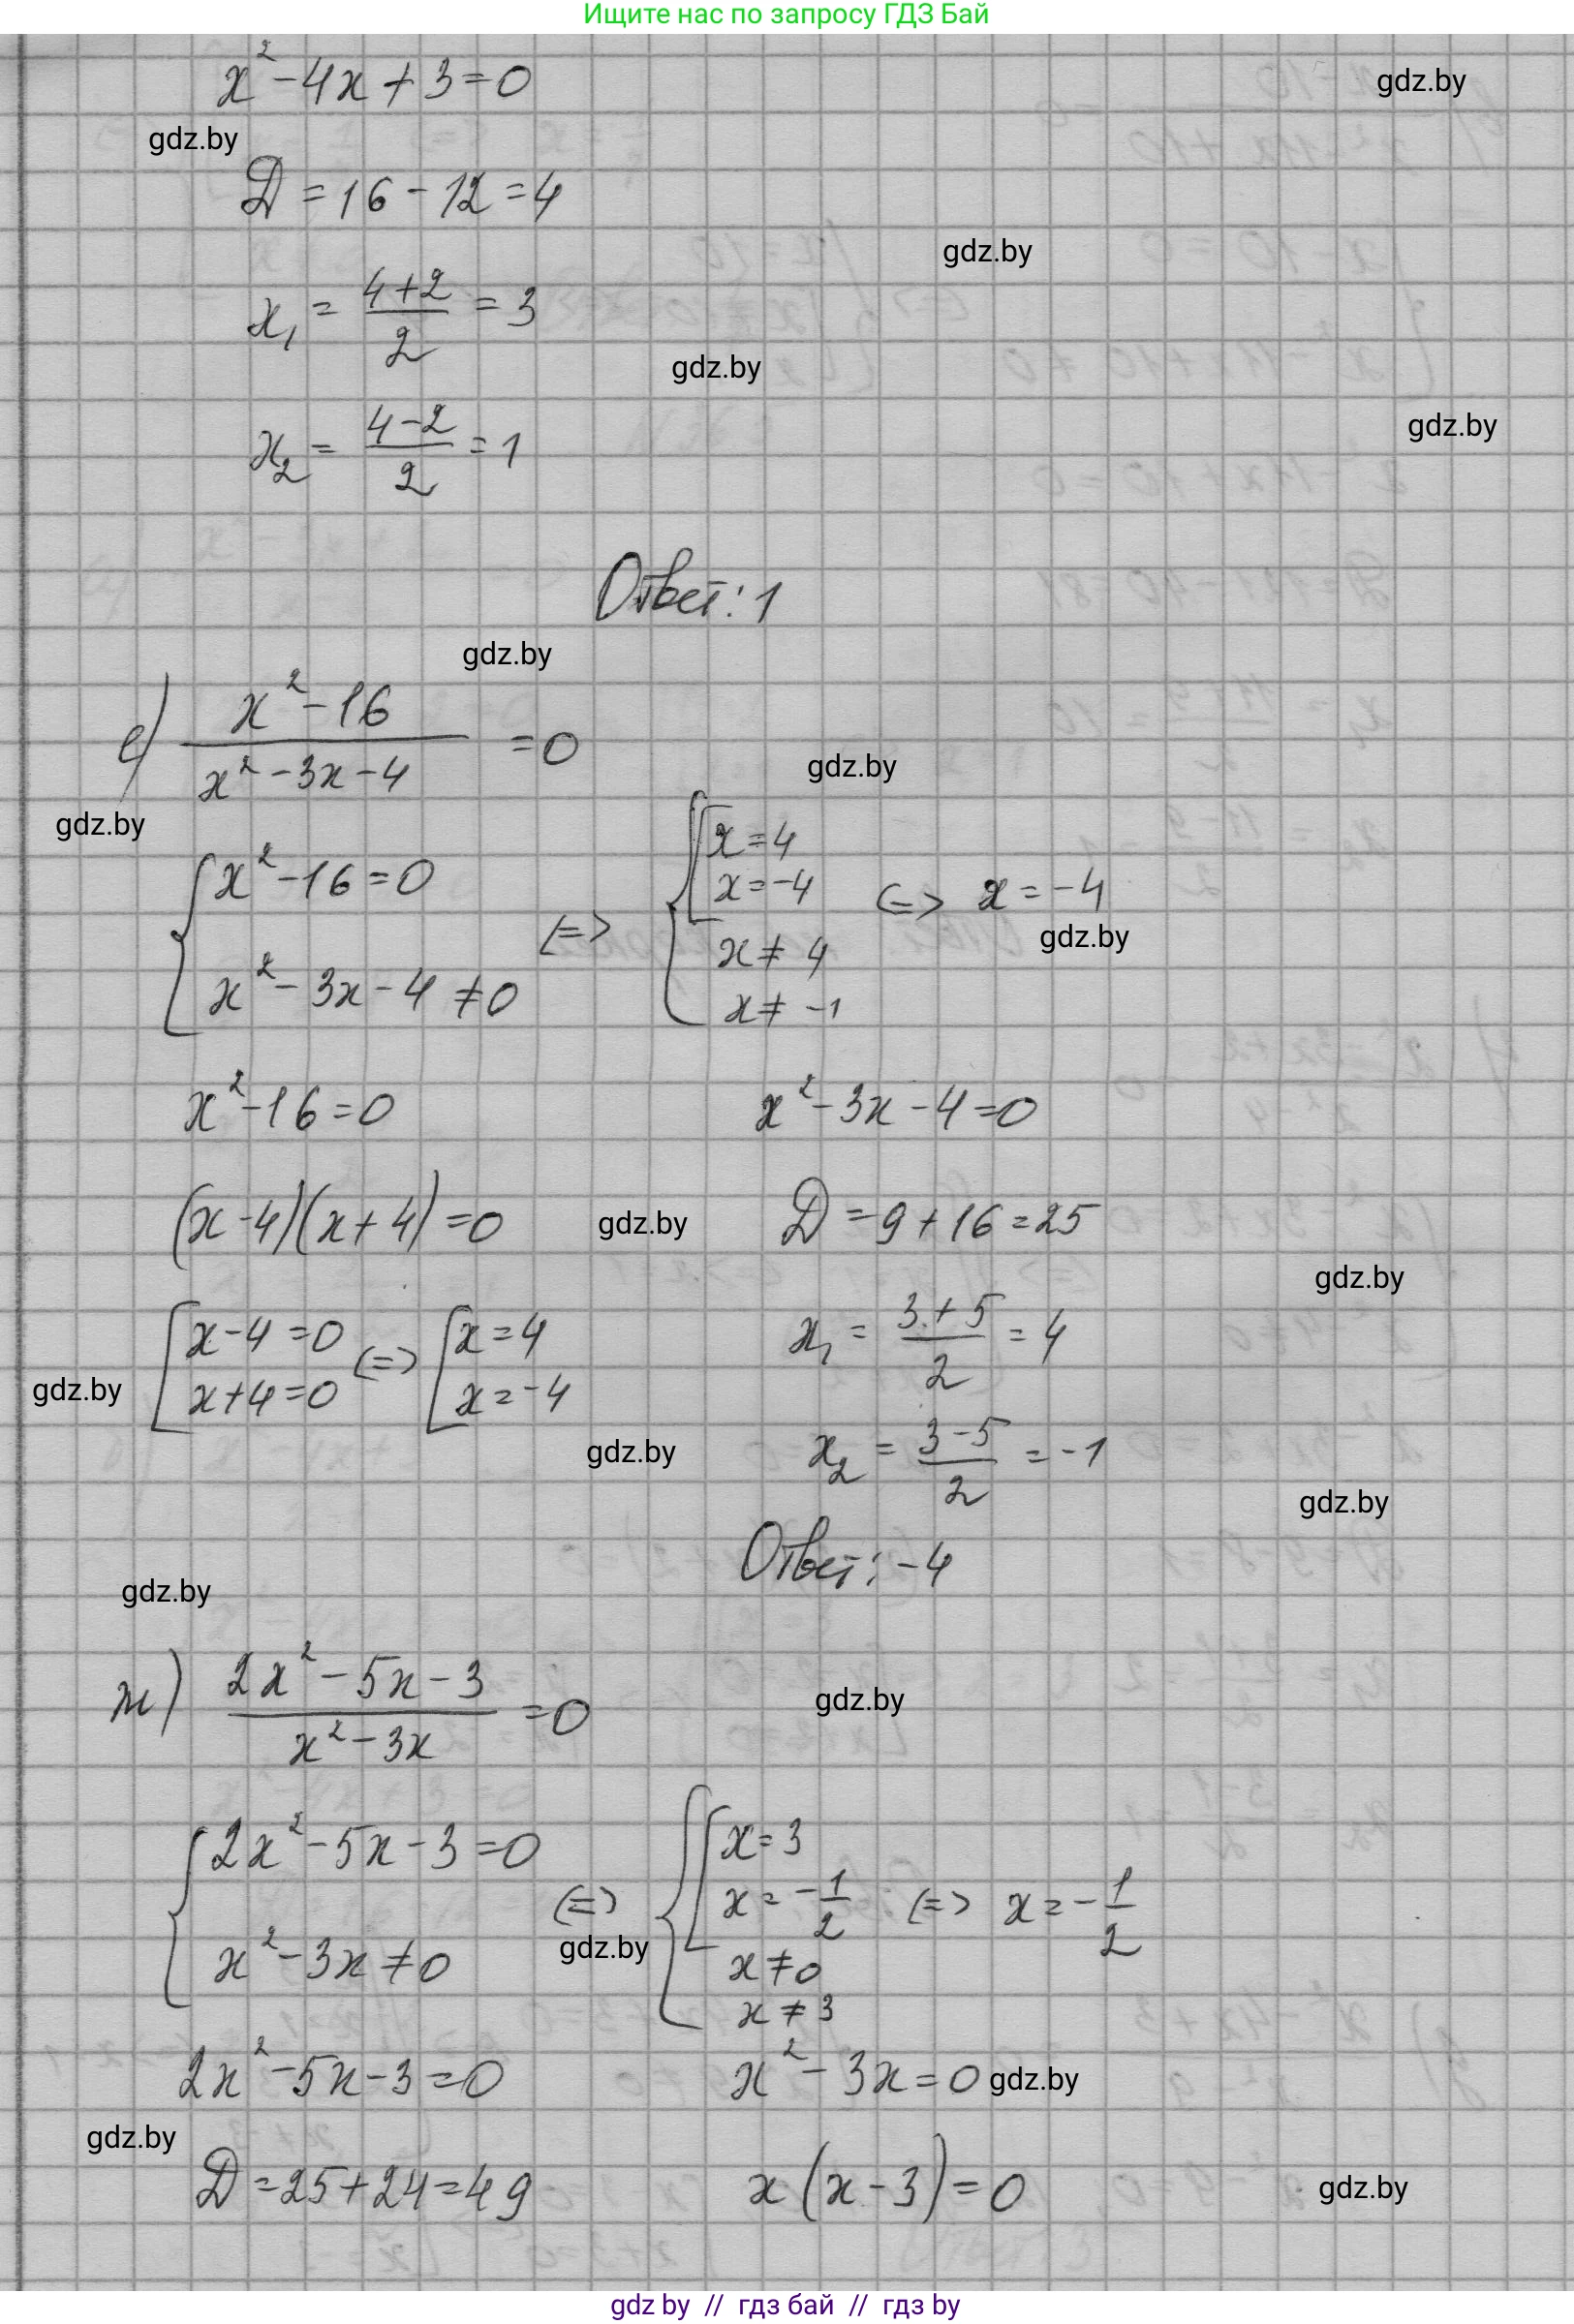 Ищите нас по запросу ГДЗ Бай
x² - 4x + 3 = 0
gdz.by
gdz.by
D = 16 - 12 = 4
gdz.by
x₁ = (4+2)/2 = 3
gdz.by
x₂ = (4-2)/2 = 1
gdz.by
Ответ: 1
gdz.by
е) (x² - 16)/(x² - 3x - 4) = 0
gdz.by
gdz.by
{ x² - 16 = 0
x² - 3x - 4 ≠ 0
<=>
{ [ x = 4
x = -4
x ≠ 4
x ≠ -1
<=> x = -4
gdz.by
x² - 16 = 0
x² - 3x - 4 = 0
(x - 4)(x + 4) = 0
gdz.by
D = 9 + 16 = 25
gdz.by
[ x - 4 = 0
x + 4 = 0
<=> [ x = 4
x = -4
x₁ = (3+5)/2 = 4
gdz.by
gdz.by
x₂ = (3-5)/2 = -1
gdz.by
Ответ: -4
gdz.by
ж) (2x² - 5x - 3)/(x² - 3x) = 0
gdz.by
{ 2x² - 5x - 3 = 0
x² - 3x ≠ 0
<=>
gdz.by
{ [ x = 3
x = -1/2
x ≠ 0
x ≠ 3
<=> x = -1/2
2x² - 5x - 3 = 0
x² - 3x = 0
gdz.by
gdz.by
D = 25 + 24 = 49
x(x - 3) = 0
gdz.by
gdz by // гдз бай // гдз by